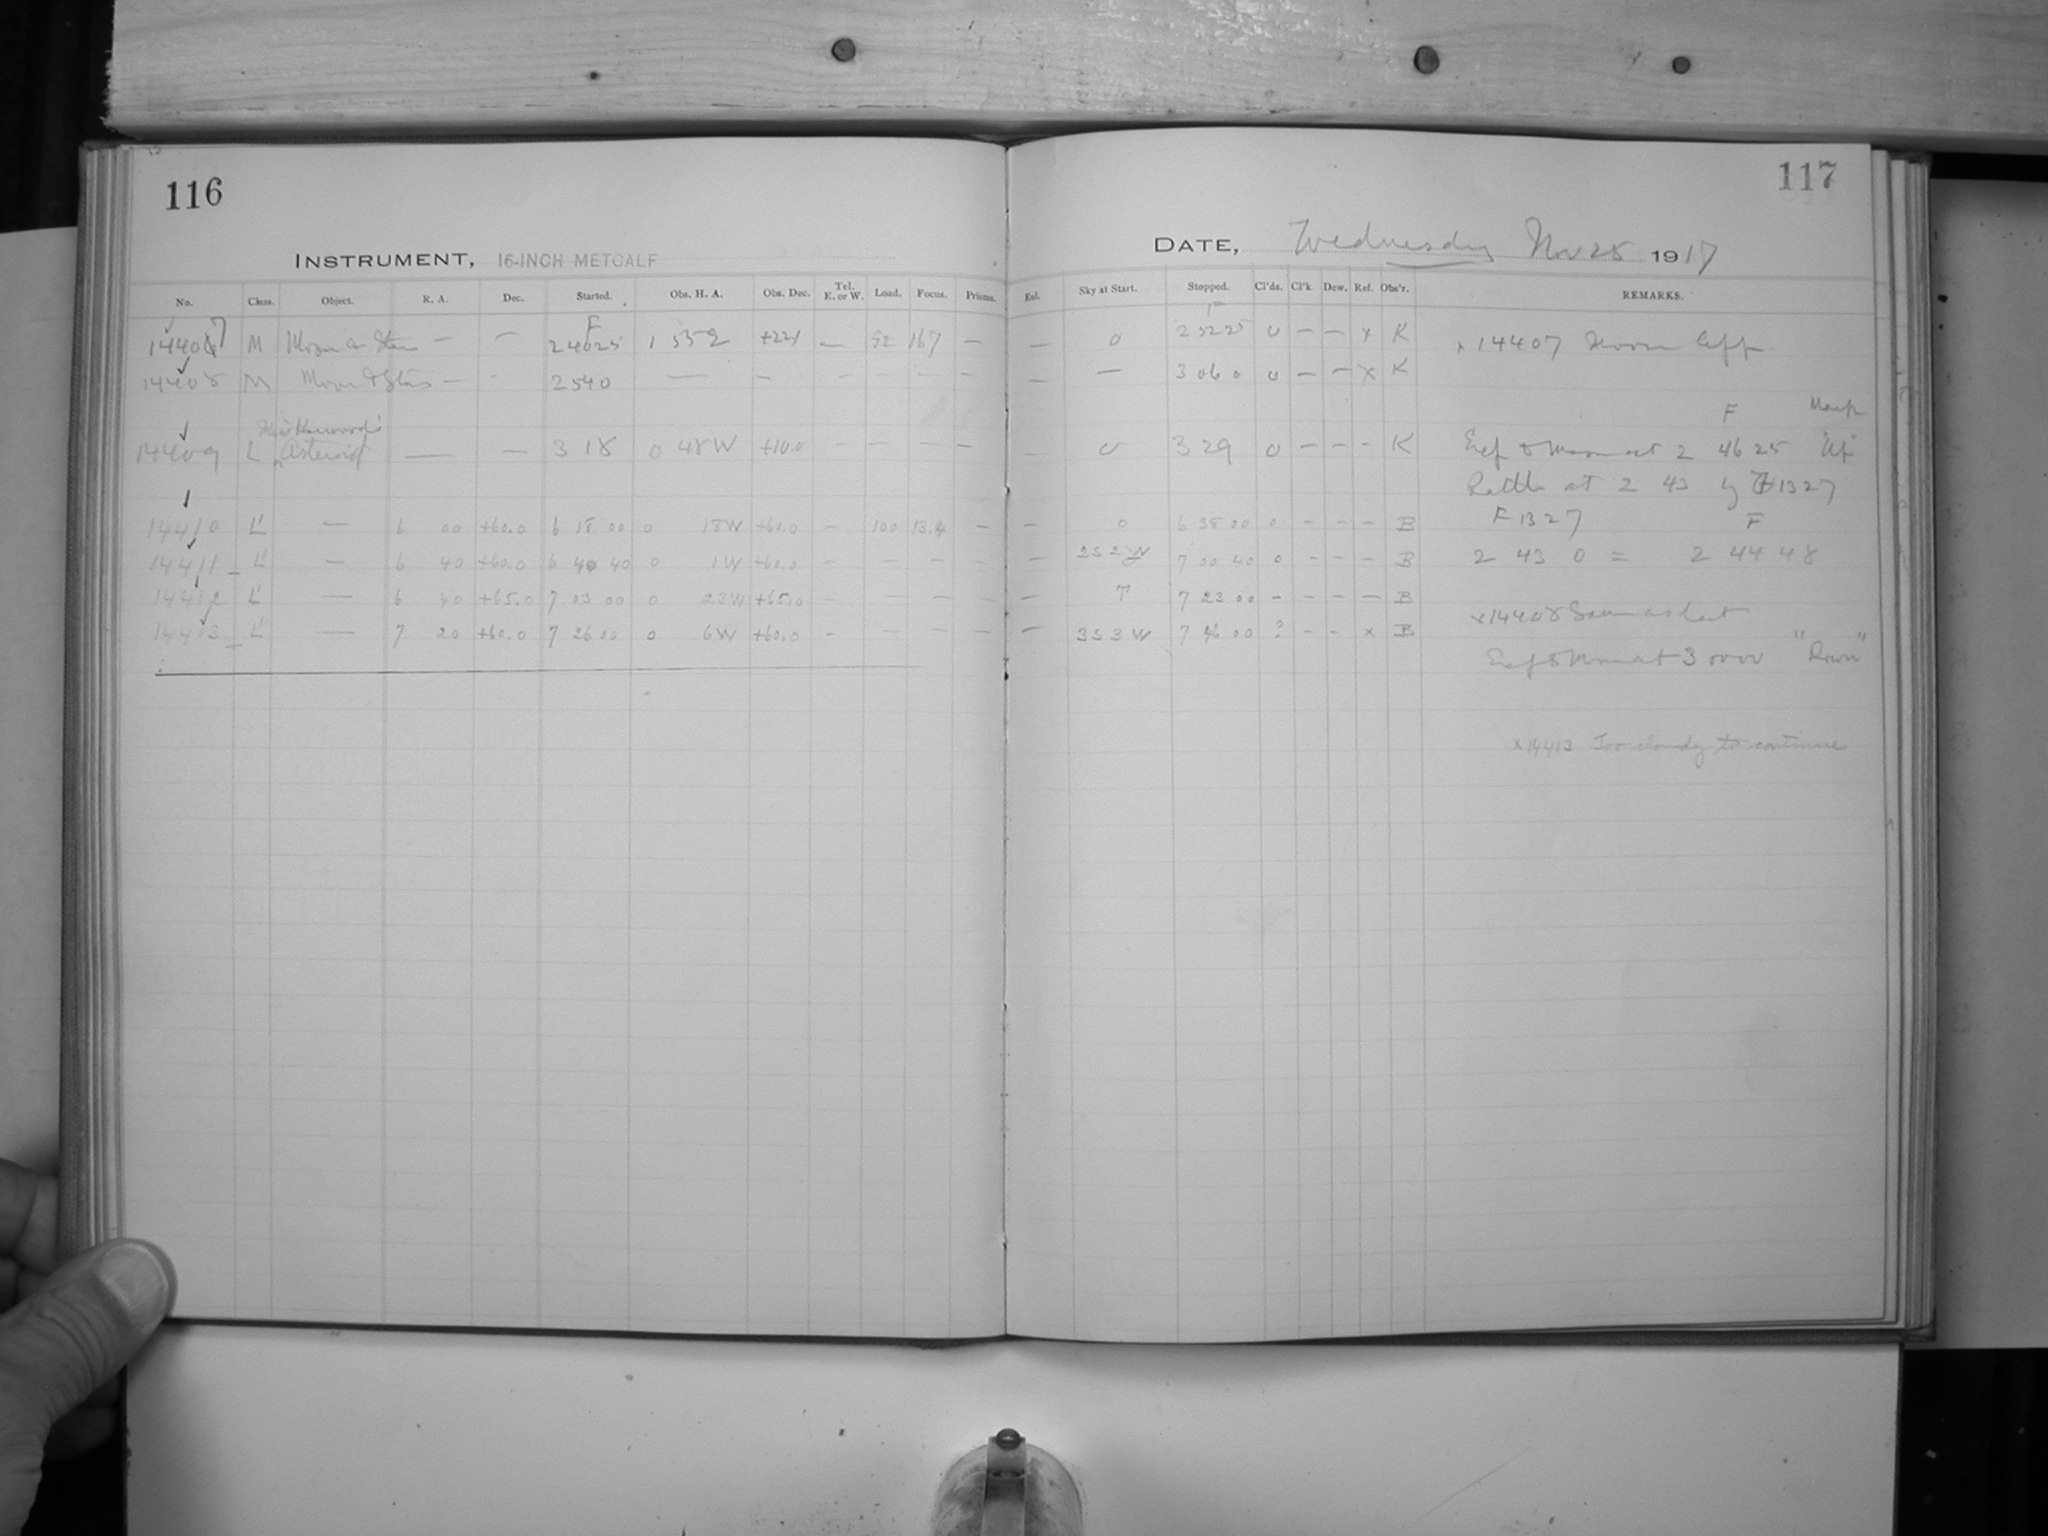 116
117
INSTRUMENT, 16-INCH METCALF
DATE, Wednesday Nov 28 1917
No. Class. Object. R. A. Dec. Started. Obs. H. A. Obs. Dec. Tel. E. or W. Load. Focus. Prisms. Exl. Sky at Start. Stopped. Cl'ds. Cl'k. Dew. Ref. Obs'r. REMARKS.
F F
14407 M Moon & Stars — — 24625 1 552 — 92 167 — — 0 25225 0 — — x K x 14407 Moon
14408 M Moon & Stars — - 2540 — — — — 3 06 0 0 — — x K
F Mark
Miss Harwood's
14409 L Asteroid — — 3 18 0 48W +10.0 - — — — — 0 3 29 0 — — - K Moon at 2 46 25
Rattle at 2 43 1327
14410 L' — 6 00 +60.0 6 18 00 0 18W +60.0 - 100 13.4 — — 0 6 38 00 0 - - - B F 1327 F
14411 L' — 6 40 +60.0 6 40 40 0 1W +60.0 - — — — — 252W 7 00 40 0 - - - B 2 43 0 = 2 44 48
14412 L' — 6 40 +65.0 7 03 00 0 23W +65.0 - — — — — T 7 23 00 - - - — B
x14408 Same as last
14413 L' — 7 20 +60.0 7 26 00 0 6W +60.0 - — — — — 353W 7 46 00 ? - - x B
at 3 00 00 "Down"
x14413 Too cloudy to continue